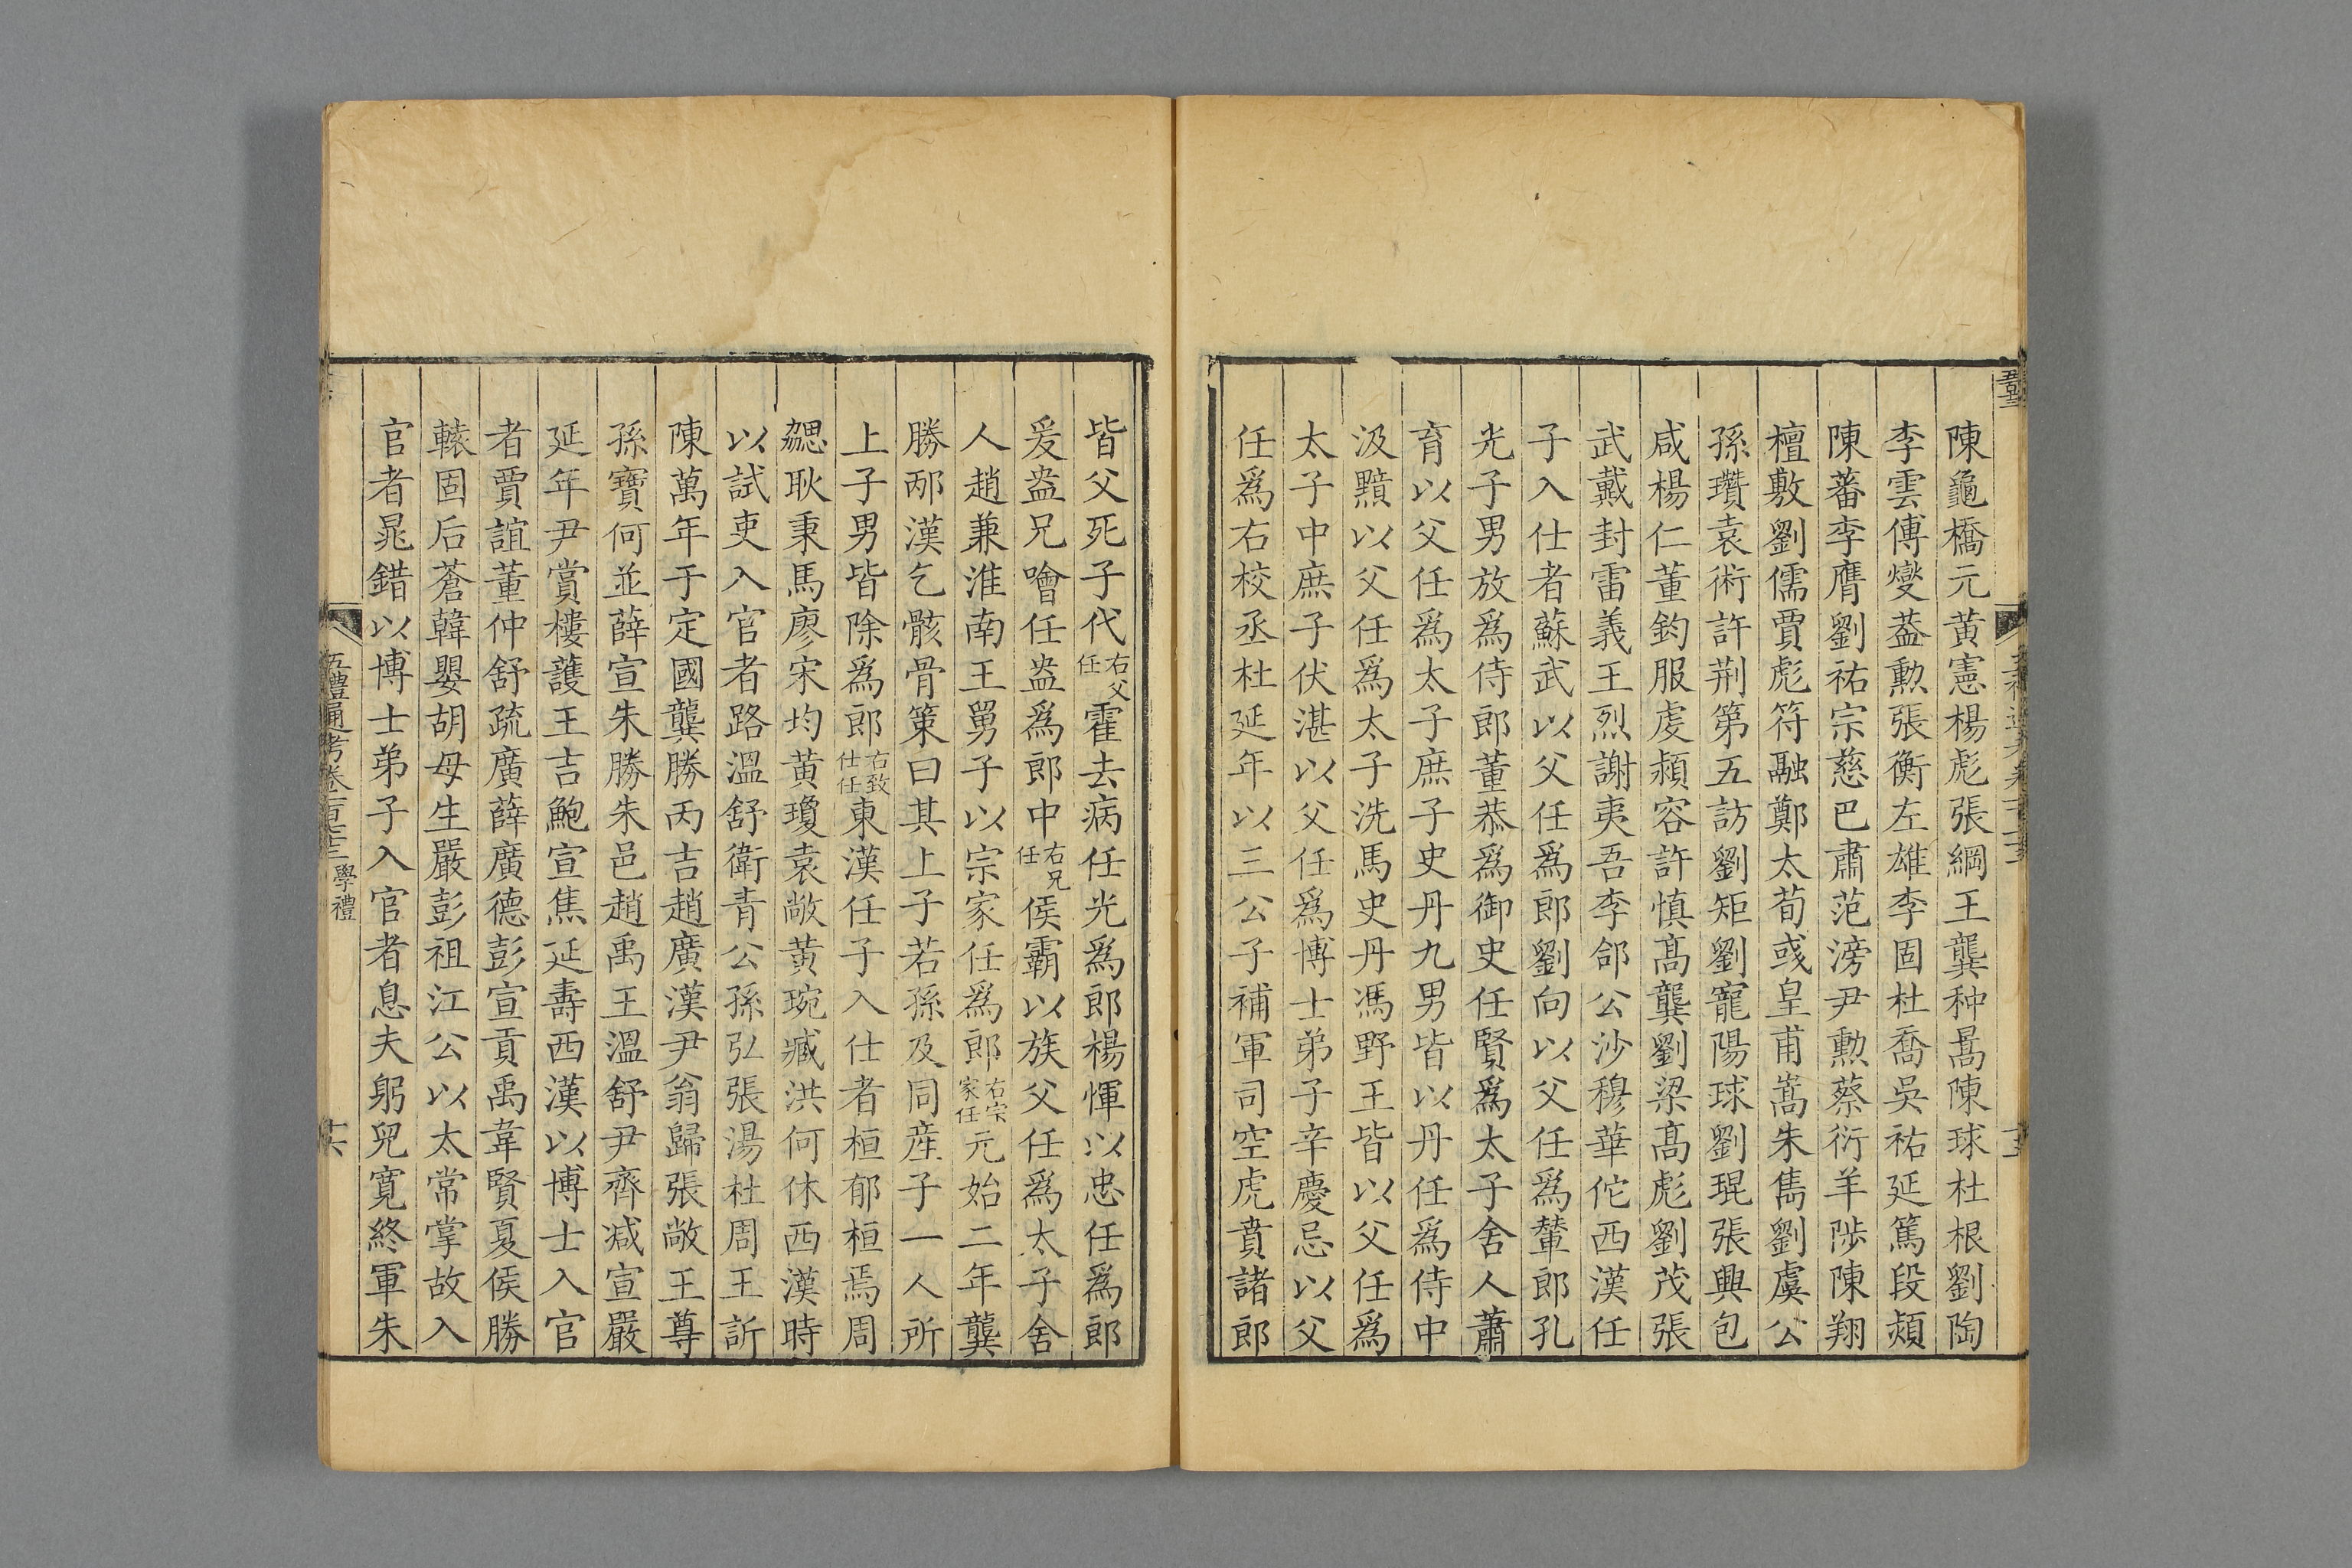 陳龜橋元黃憲楊彪張綱王龔种暠陳球杜根劉陶
李雲傅燮葢勲張衡左雄李固杜喬吳祐延篤段熲
陳蕃李膺劉祐宗慈巴肅范滂尹勲蔡衍羊陟陳翔
檀敷劉儒賈彪符融鄭太荀彧皇甫嵩朱雋劉虞公
孫瓚袁術許荆第五訪劉矩劉寵陽球劉琨張興包
咸楊仁董鈞服虔潁容許慎高龔劉梁高彪劉茂張
武戴封雷義王烈謝夷吾李郃公沙穆華佗西漢任
子入仕者蘇武以父任爲郎劉向以父任爲輦郎孔
光子男放爲侍郎董恭爲御史任賢爲太子舍人蕭
育以父任爲太子庶子史丹九男皆以丹任爲侍中
汲黯以父任爲太子洗馬史丹馮野王皆以父任爲
太子中庶子伏湛以父任爲博士弟子辛慶忌以父
任爲右校丞杜延年以三公子補軍司空虎賁諸郎
皆父死子代右父任霍去病任光爲郎楊惲以忠任爲郎
爰盎兄噲任盎爲郎中右兄任侯霸以族父任爲太子舍
人趙兼淮南王舅子以宗家任爲郎右宗家任元始二年龔
勝邴漢乞骸骨策曰其上子若孫及同產子一人所
上子男皆除爲郎右致仕任東漢任子入仕者桓郁桓焉周
勰耿秉馬廖宋均黃瓊袁敞黃琬臧洪何休西漢時
以試吏入官者路溫舒衛青公孫弘張湯杜周王訢
陳萬年于定國龔勝丙吉趙廣漢尹翁歸張敞王尊
孫寶何並薛宣朱勝朱邑趙禹王溫舒尹齊減宣嚴
延年尹賞樓護王吉鮑宣焦延壽西漢以博士入官
者賈誼董仲舒疏廣薛廣德彭宣貢禹韋賢夏侯勝
轅固后蒼韓嬰胡母生嚴彭祖江公以太常掌故入
官者晁錯以博士弟子入官者息夫躬兒寬終軍朱
五禮通考卷一百七十三 學禮 十六